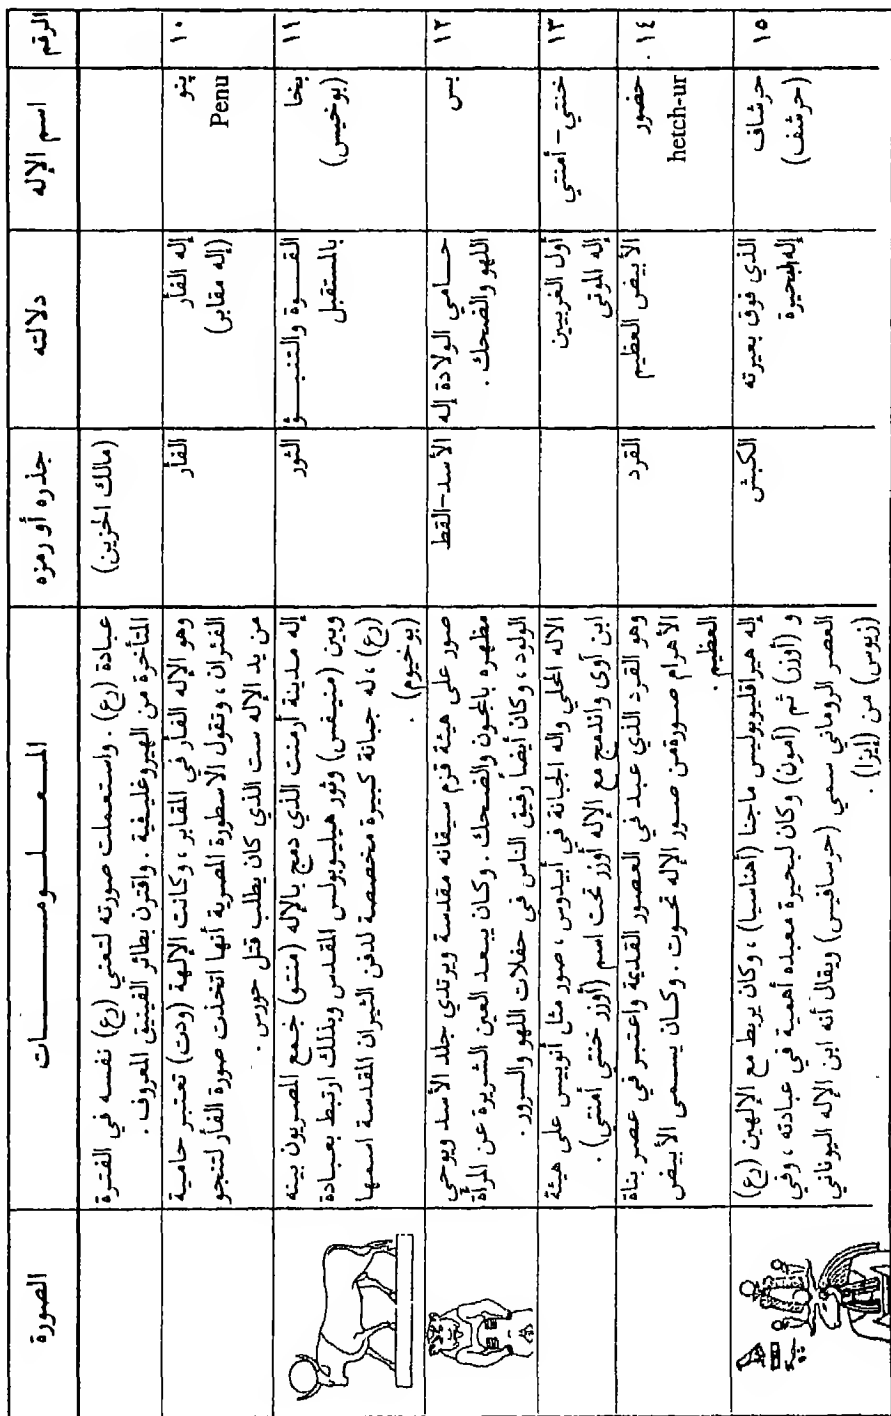 الرقم
اسم الإله
دلالته
جذره أو رمزه
المعلومات
الصورة
(مالك الحزين)
عبادة (رع) . واستعملت صورته لتعني (رع) نفسه في الفترة
المتأخرة من الهيروغليفية . واقترن بطائر الفينيق المعروف .
١٠
پنو
Penu
إله الفأر
(إله مقابر)
الفأر
وهو الإله الفأر في المقابر ، وكانت الإلهة (ودت) تعتبر حامية
الفئران ، وتقول الاسطورة المصرية أنها اتخذت صورة الفأر لتنجو
من يد الإله ست الذي كان يطلب قتل حورس .
١١
بخا
(بوخيس)
القوة والتنبؤ
بالمستقبل
الثور
إله مدينة أرمنت الذي دمج بالإله (منتو) جمع المصريون بينه
وبين (منيفس) وثور هيليوبولس المقدس وبذلك ارتبط بعبادة
(رع) ، له جبانة كبيرة مخصصة لدفن الثيران المقدسة اسمها
(بوخيوم) .
١٢
بس
حامي الولادة إله
اللهو والضحك .
الأسد-القط
صور على هيئة قزم سيقانه مقدسة ويرتدي جلد الأسد ويوحي
مظهره بالمجون والضحك . وكان يبعد العين الشريرة عن المرأة
الولود ، وكان أيضاً رفيق الناس في حفلات اللهو والسرور .
١٣
خنتي - أمنتي
أول الغربيين
إله الموتى
الاله المحلي واله الجبانة في أبيدوس ، صور مثل أنوبيس على هيئة
ابن آوى واندمج مع الإله أوزر تحت اسم (أوزر خنتي أمنتي) .
١٤ .
حضور
hetch-ur
الأبيض العظيم
القرد
وهو القرد الذي عبد في العصور القديمة واعتبر في عصر بناة
الأهرام صورة من صور الإله تحوت . وكان يسمى الأبيض
العظيم .
١٥
حرشاف
(حرشف)
الذي فوق بعيرته
إله البحيرة
الكبش
إله هيراقليوبوليس ماجنا (أهناسيا) ، وكان يربط مع الإلهين (رع)
و (أوزر) ثم (آمون) وكان لبحيرة معبده أهمية في عبادته ، وفي
العصر الروماني سمي (حرسافيس) ويقال أنه ابن الإله اليوناني
(زيوس) من (إيزا) .